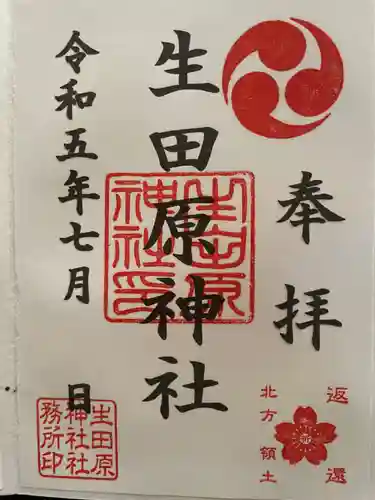 奉拝
生田原神社
令和五年七月 日
生田原
神社印
返還
北方領土
祈
生田原
神社社
務所印